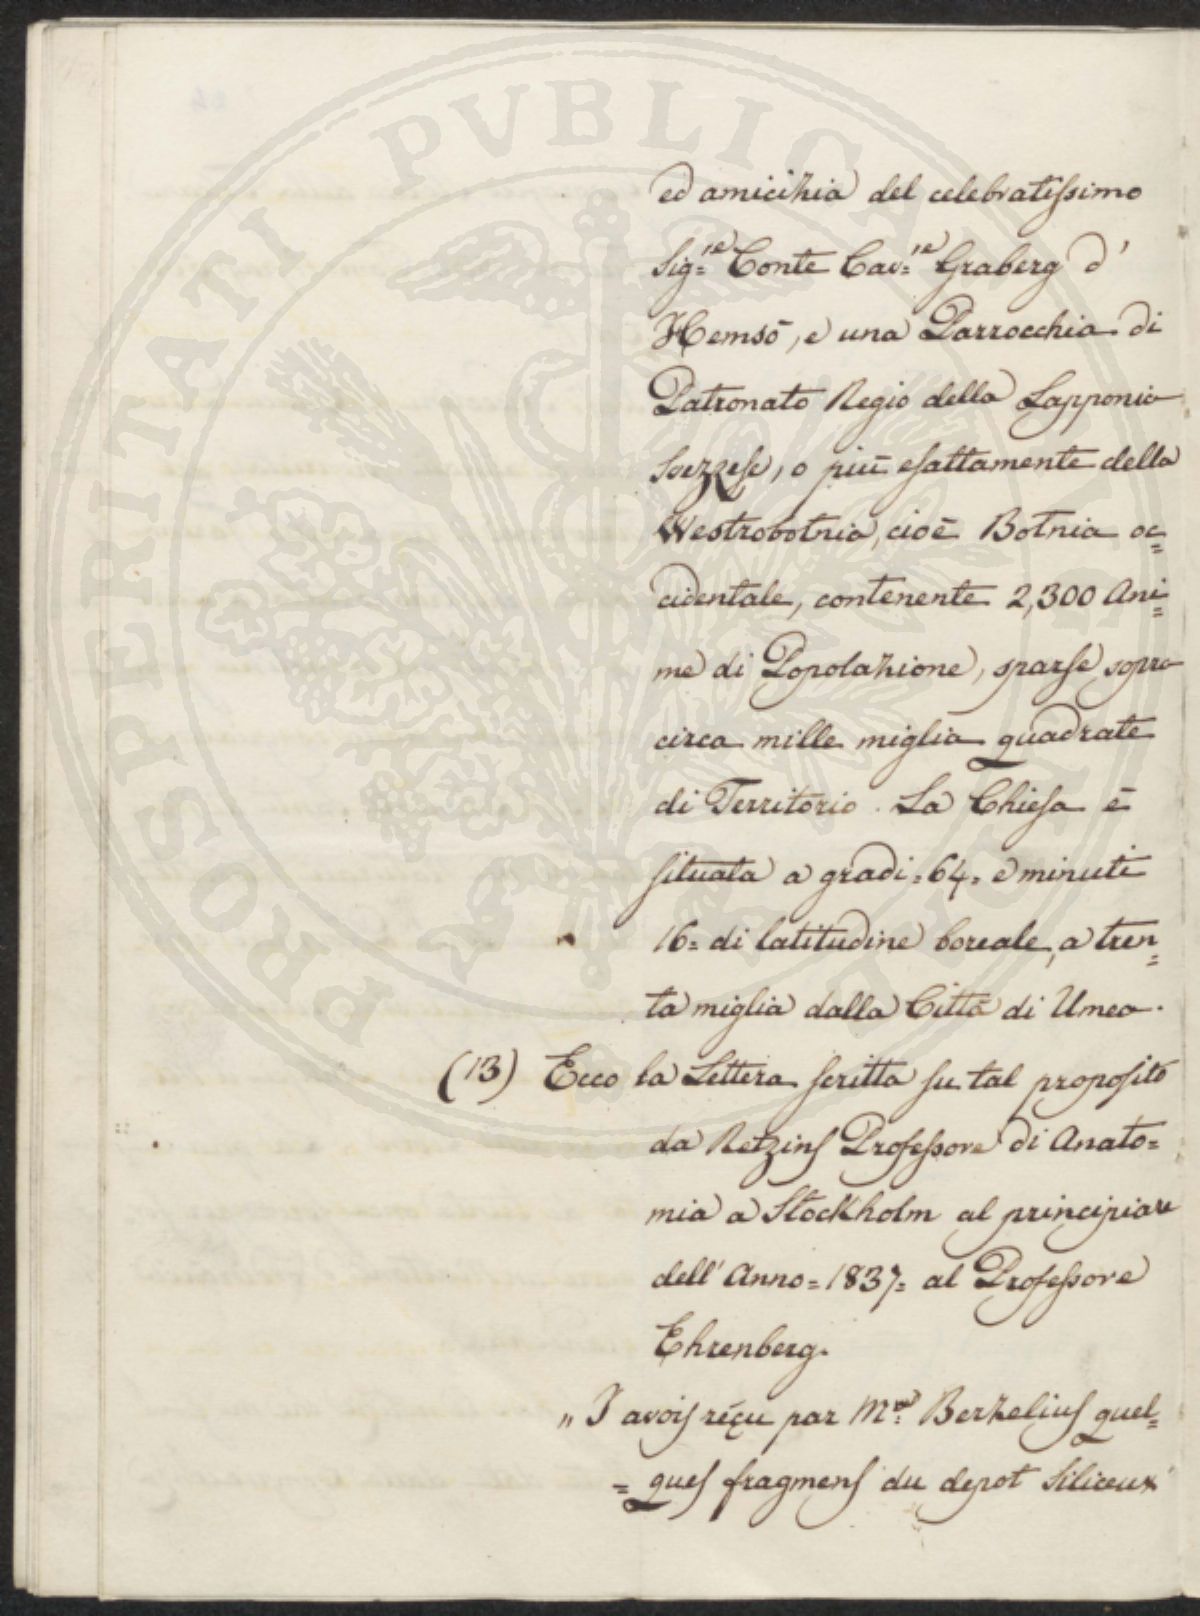 PROSPERITATI PVBLICAE
ed amicizia del celebratissimo
Sig.re Conte Cav.re Graberg d'
Hemsö, e una Parrocchia di
Patronato Regio della Lapponia
Svezzese, o più esattamente della
Westrobotnia, cioè Botnia oc=
cidentale, contenente 2,300 Ani=
me di Popolazione, sparse sopra
circa mille miglia quadrate
di Territorio. La Chiesa è
situata a gradi =64= e minuti
16= di latitudine boreale, a tren=
ta miglia dalla Città di Umea.
(13) Ecco la Lettera scritta su tal proposito
da Retzins Professore di Anato=
mia a Stockholm al principiare
dell'Anno =1837= al Professore
Ehrenberg.
„ J avois réçu par Mr. Berzelius quel=
= ques fragmens du depot siliceux